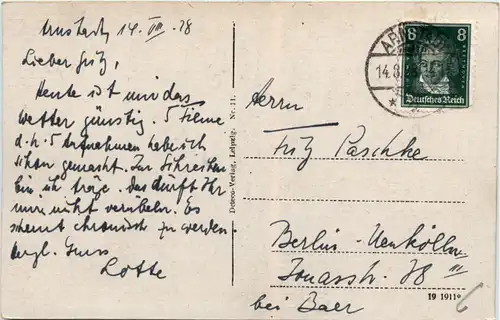 Arnstadt, 14. VIII. 28
Lieber Fritz,
Heute ist mir das
Wetter günstig. 5 Filme
d.h. 5 Aufnahmen habe ich
schon gemacht. Zur Schreiben
bin ich träge. Das dürft Ihr
mir nicht verübeln. Es
scheint chronisch zu werden
Hrzl. Gruss
Lotte
Deteco-Verlag, Leipzig. Nr. 11.
14.8
8 8
Deutsches Reich
Herrn
Fritz Paschke
Berlin-Neukölln
Jonasstr. 78 III
bei Baer
19 1911